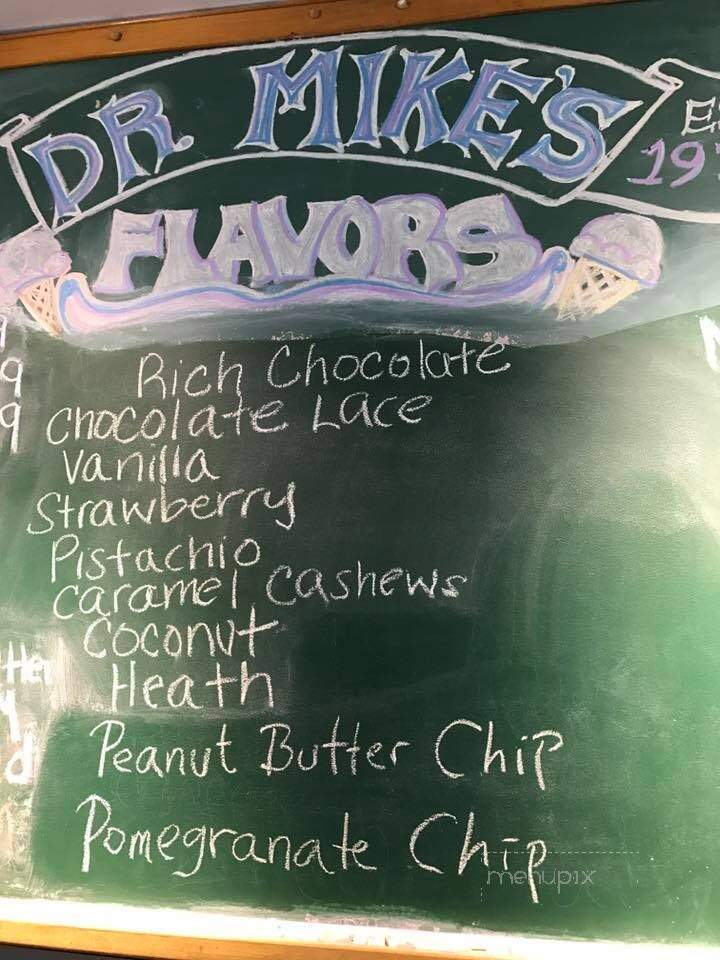 DR. MIKE'S
FLAVORS
Rich Chocolate
Chocolate Lace
Vanilla
Strawberry
Pistachio
Caramel Cashews
Coconut
Heath
Peanut Butter Chip
Pomegranate Chip
menupix